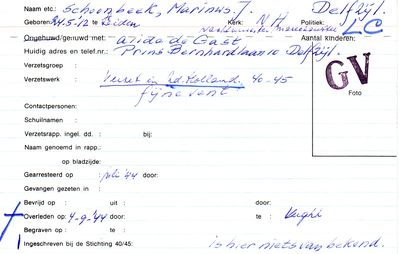 Naam etc.: Schoonbeek, Marinus J. Delfzijl.
Geboren 24-5-12 te Leiden Kerk: N.H. Politiek:
LC
Ongehuwd/gehuwd met: Alida de Gast Aantal kinderen:
Huidig adres en telef.nr.: Prins Bernhardlaan 10 Delfzijl.
Verzetsgroep :
Verzetswerk : Verzet in Zd. Holland. 40-45
fijne vent
GV
Foto
Contactpersonen:
Schuilnamen :
Verzetsrapp. ingel. dd. : bij:
Naam genoemd in rapp.:
op bladzijde:
Gearresteerd op : juli '44 door:
Gevangen gezeten in :
Bevrijd op : uit : door:
Overleden op : 4-9-'44 door: te : Vught
Begraven op : te :
Ingeschreven bij de Stichting 40/45: is hier niets van bekend.